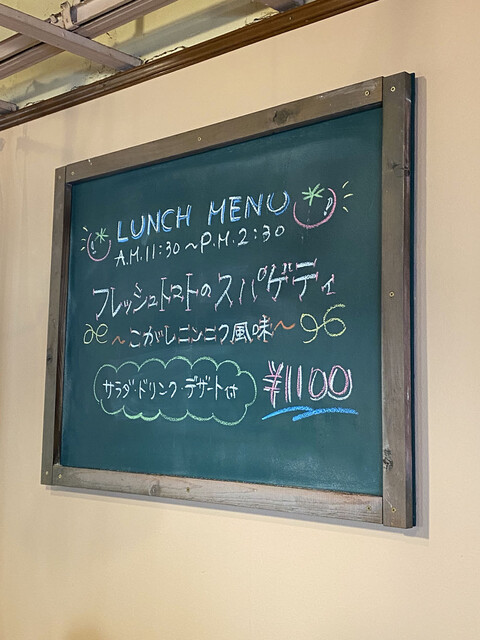 LUNCH MENU
A.M.11:30～P.M.2:30
フレッシュトマトのスパゲティ
～こがしニンニク風味～
サラダ・ドリンク・デザート付
¥1100